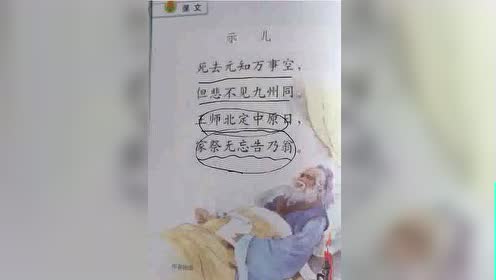 课文
示儿
死去元知万事空，
但悲不见九州同。
王师北定中原日，
家祭无忘告乃翁。